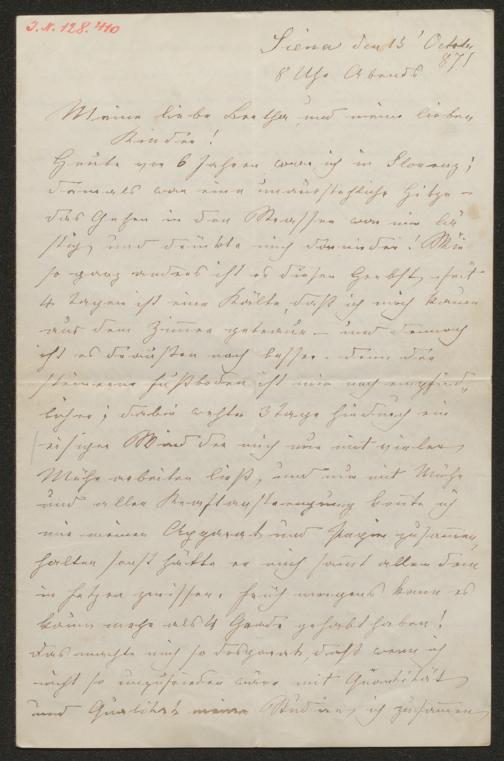 J.N. 128.410
Siena den 13' October
871
8 Uhr Abends
Meine liebe Bertha und meine lieben
Kinder!
Heute vor 6 Jahren war ich in Florenz;
damals war eine unausstehliche Hitze –
das Gehen in den Strassen war mir lä
stig und drückte mich darnieder! Wie
so ganz anders ist es diesen Herbst – seit
4 Tagen ist eine Kälte, daß ich mich kaum
aus dem Zimmer getraue – und dennoch
ist es draußen noch besser. denn der
steinerne Fußboden ist mir noch empfind„
licher; dabei wehte 3 Tage hindurch ein
eisiger Wind der mich nur mit vieler
Mühe arbeiten ließ, und nur mit Mühe
und aller Kraftanstrengung konnte ich
mir meinen Apparat und Papier zusammen„
halten sonst hätte er mich sammt allem dem
in Fetzen zerrissen. Früh morgens kann es
kaum mehr als 4 Grade gehabt haben!
Das machte mich so desperat, daß wenn ich
nicht so unzufrieden wäre mit Quantität
und Qualität meiner Studien, ich zusammen